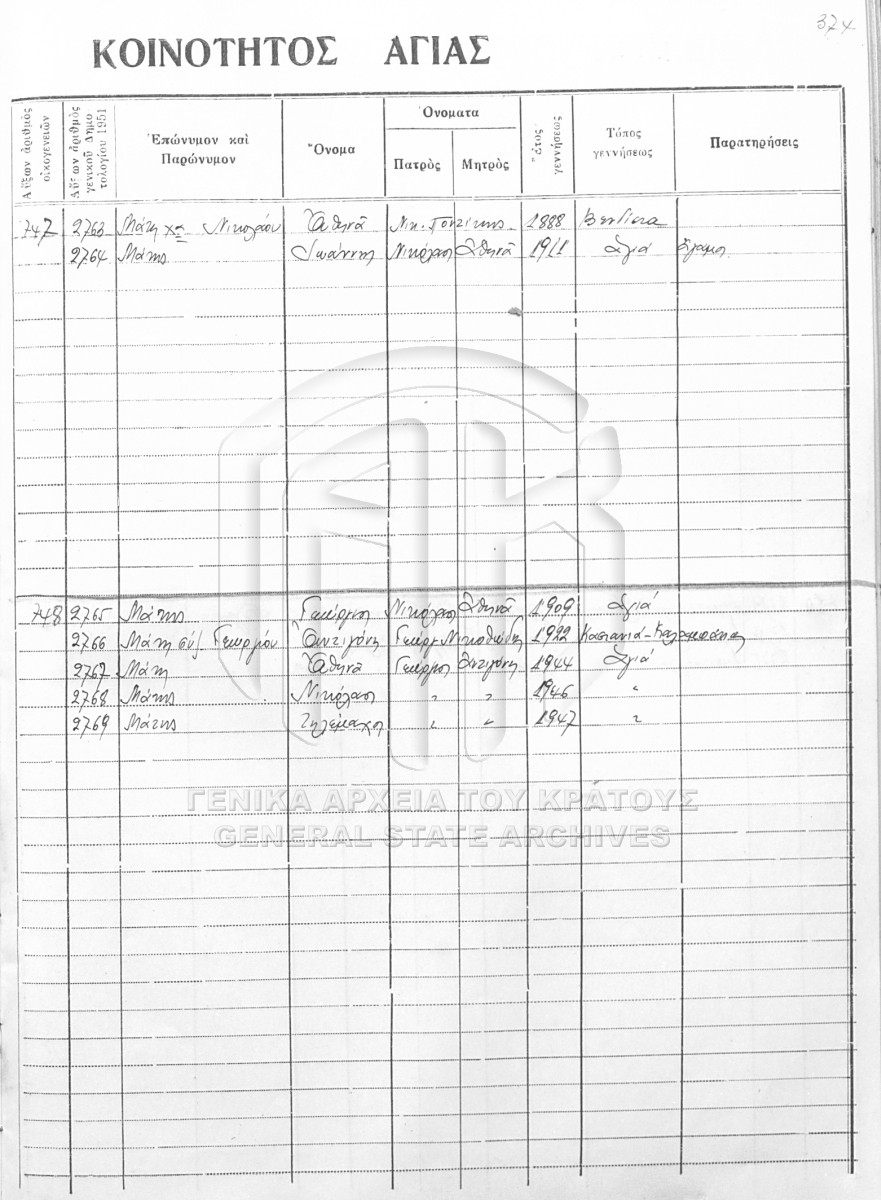 374
ΚΟΙΝΟΤΗΤΟΣ ΑΓΙΑΣ
Αὔξων ἀριθμὸς οἰκογενειῶν
Αὔξων ἀριθμὸς γενικοῦ Δημοτολογίου 1951
Ἐπώνυμον καὶ Παρώνυμον
Ὄνομα
Ὀνοματα
Πατρὸς
Μητρὸς
Ἔτος γεννήσεως
Τόπος γεννήσεως
Παρατηρήσεις
747 2763 Μάτη χα Νικολάου Ἀθηνᾶ Νικ. 1888
2764 Μάτης Ἰωάννης Νικόλαος Ἀθηνᾶ 1911 Ἁγιά Ἄγαμος
748 2765 Μάτης Γεώργιος Νικόλαος Ἀθηνᾶ 1909 Ἁγιά
2766 Μάτη σύζ. Γεωργίου Ἀντιγόνη Γεώργ. 1922 Καστανιά - Καλαμπάκας
2767 Μάτη Ἀθηνᾶ Γεώργιος Ἀντιγόνη 1944 Ἁγιά
2768 Μάτης Νικόλαος " " 1946 "
2769 Μάτης Τηλέμαχος " " 1947 "
ΓΕΝΙΚΑ ΑΡΧΕΙΑ ΤΟΥ ΚΡΑΤΟΥΣ
GENERAL STATE ARCHIVES